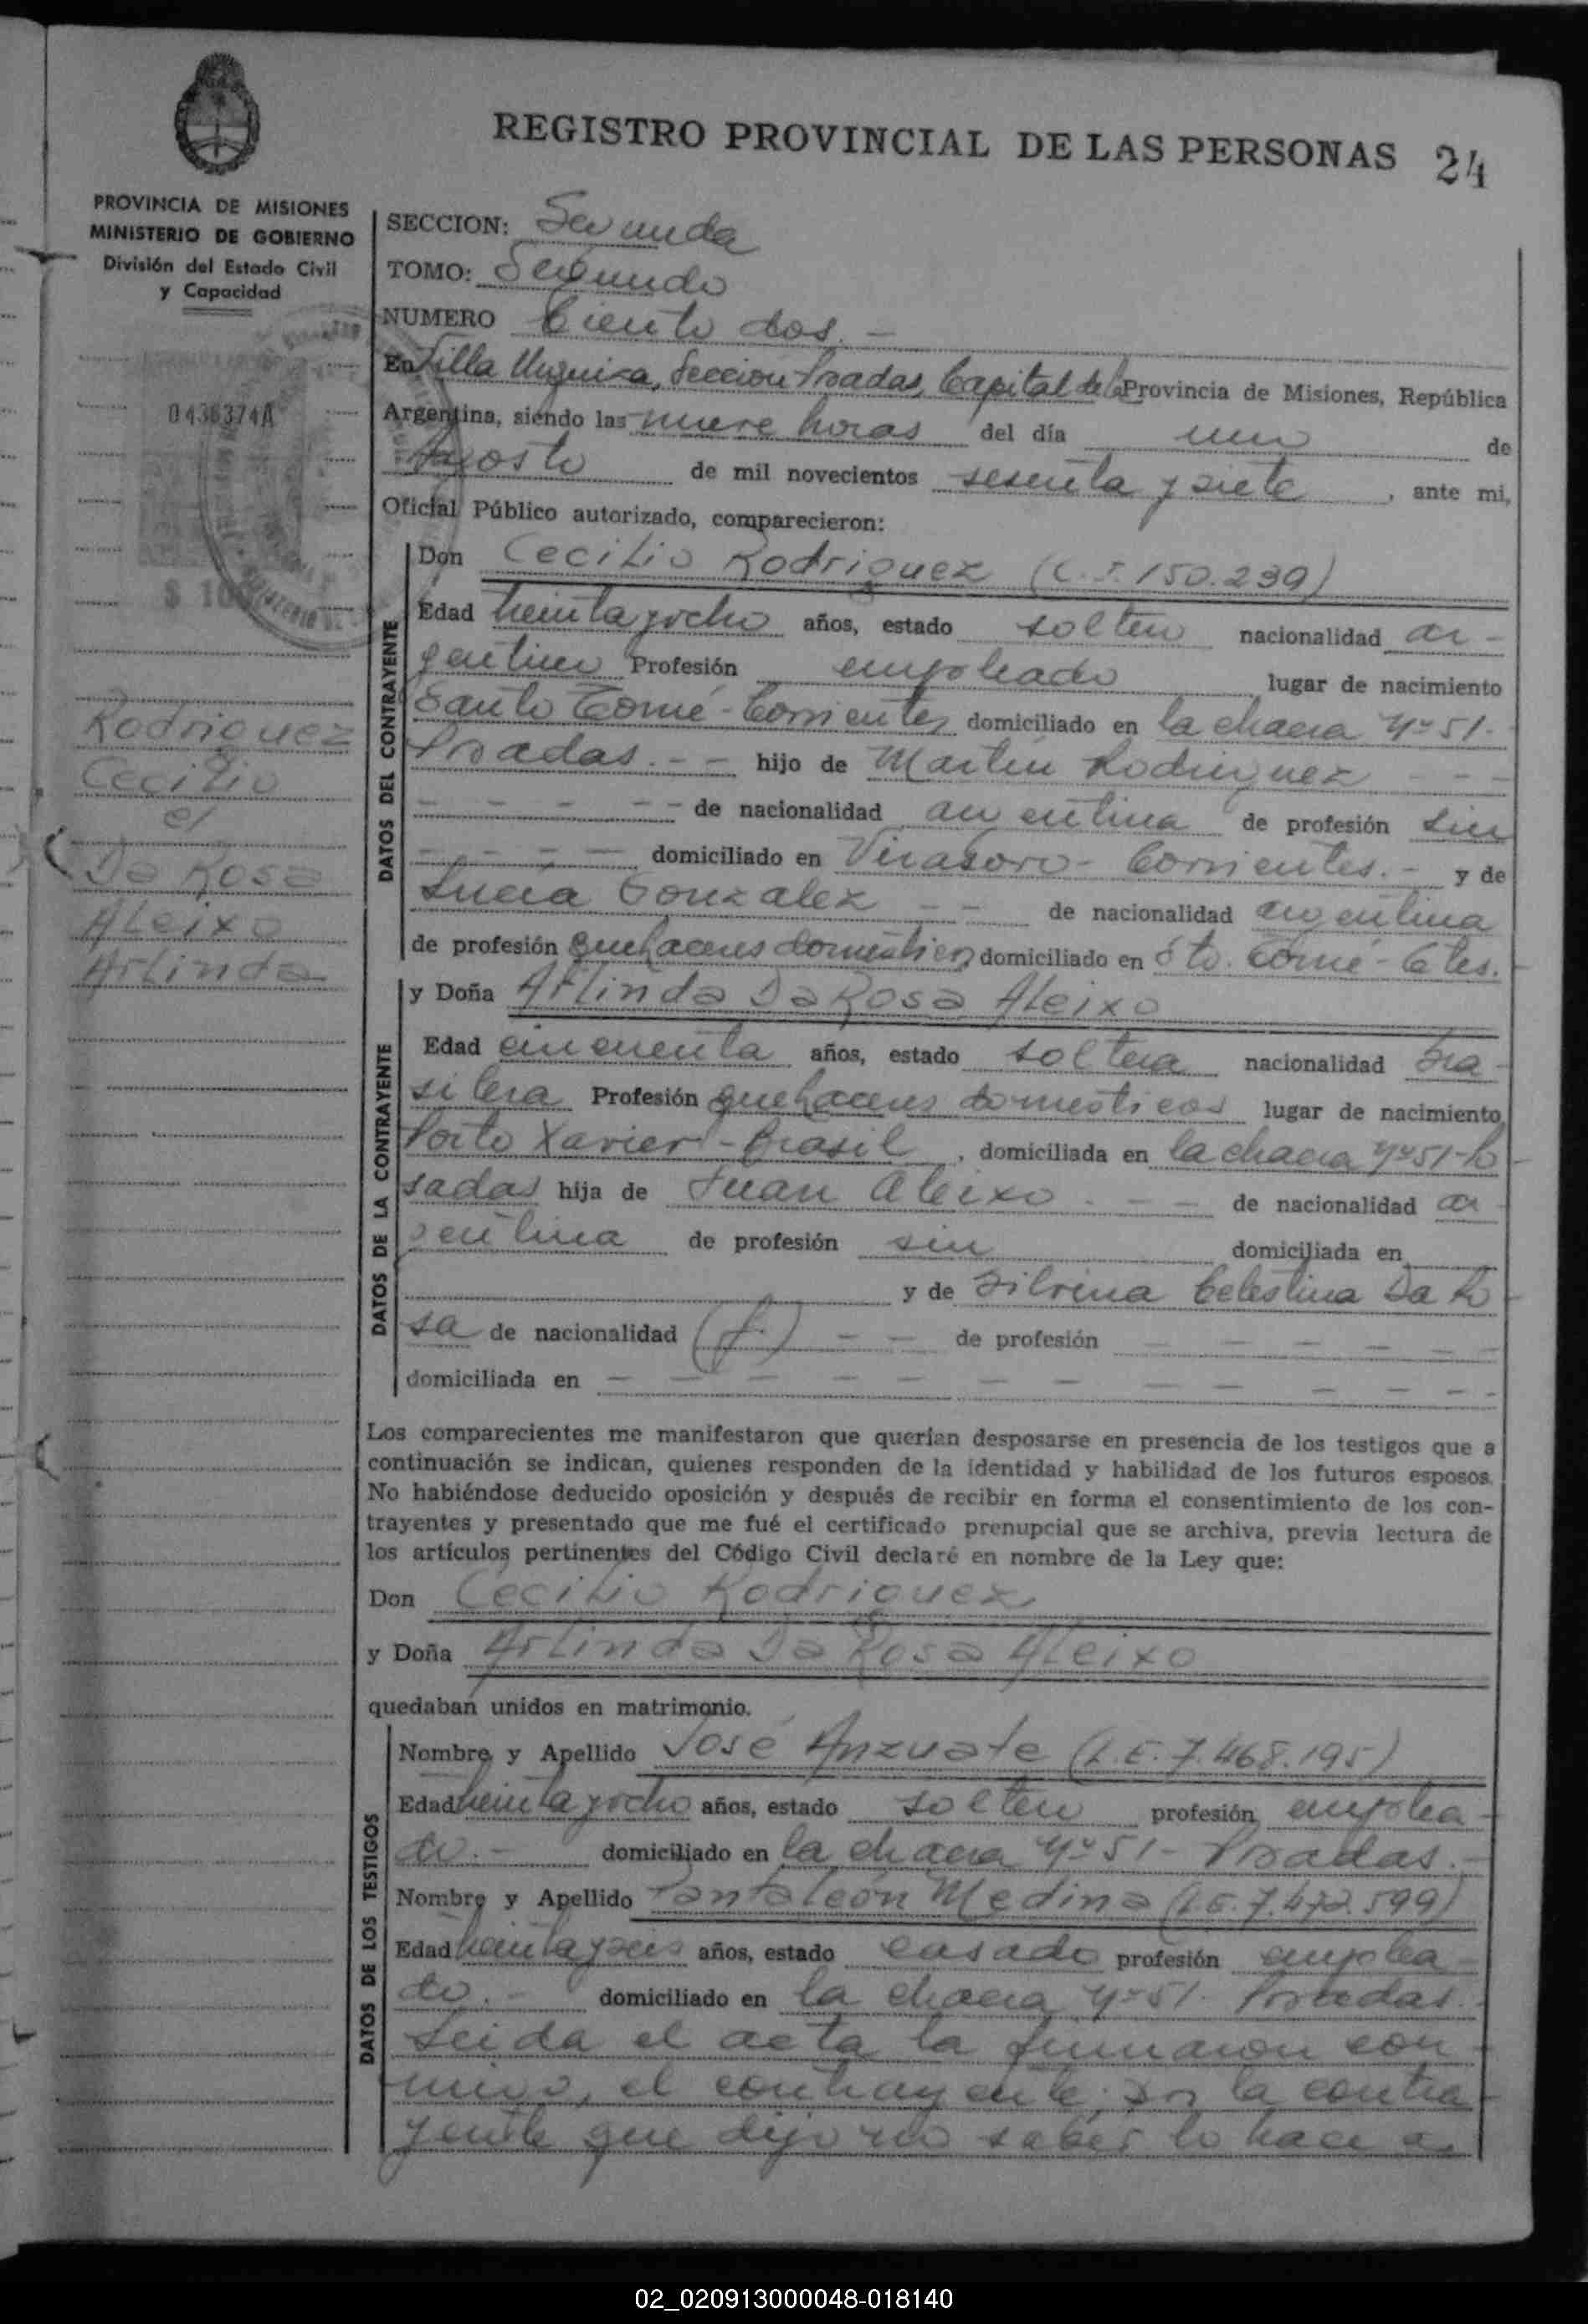 REGISTRO PROVINCIAL DE LAS PERSONAS 24
PROVINCIA DE MISIONES
MINISTERIO DE GOBIERNO
División del Estado Civil
y Capacidad
0436374A
$ 10
Rodriguez
Cecilio
c/
Da Rosa
Aleixo
Arlinda
SECCION: Segunda
TOMO: Segundo
NUMERO Ciento dos. -
En Villa Urquiza, Seccion Posadas, Capital de la Provincia de Misiones, República
Argentina, siendo las nueve horas del día uno de
Agosto de mil novecientos sesenta y siete, ante mi,
Oficial Público autorizado, comparecieron:
DATOS DEL CONTRAYENTE
Don Cecilio Rodriguez (C.I. 150.239)
Edad treinta y ocho años, estado soltero nacionalidad ar-
gentino Profesión empleado lugar de nacimiento
Santo Tomé - Corrientes domiciliado en la chacra Nº 51-
Posadas. - - hijo de Martin Rodriguez - - -
- - - - - de nacionalidad argentina de profesión sin
- - - - domiciliado en Virasoro - Corrientes. - y de
Lucia Gonzalez - - de nacionalidad argentina
de profesión quehaceres domésticos domiciliado en Sto. Tomé - Ctes.
DATOS DE LA CONTRAYENTE
y Doña Arlinda Da Rosa Aleixo
Edad cincuenta años, estado soltera nacionalidad bra-
silera Profesión quehaceres domesticos lugar de nacimiento
Porto Xavier - Brasil, domiciliada en la chacra Nº 51-Po
sadas hija de Juan Aleixo - - de nacionalidad ar
gentina de profesión sin domiciliada en
y de Silvina Celestina Da Ro
sa de nacionalidad (f.) - - de profesión - - - - -
domiciliada en - - - - - - - - - - - - -
Los comparecientes me manifestaron que querían desposarse en presencia de los testigos que a
continuación se indican, quienes responden de la identidad y habilidad de los futuros esposos.
No habiéndose deducido oposición y después de recibir en forma el consentimiento de los con-
trayentes y presentado que me fué el certificado prenupcial que se archiva, previa lectura de
los artículos pertinentes del Código Civil declaré en nombre de la Ley que:
Don Cecilio Rodriguez
y Doña Arlinda Da Rosa Aleixo
quedaban unidos en matrimonio.
DATOS DE LOS TESTIGOS
Nombre y Apellido José Anzuate (L.E. 7.468.195)
Edad treinta y ocho años, estado soltero profesión emplea-
do. - domiciliado en la chacra Nº 51 - Posadas. -
Nombre y Apellido Pantaleón Medina (L.E. 7.472.599)
Edad treinta y seis años, estado casado profesión emplea-
do. - domiciliado en la chacra Nº 51. Posadas. -
Leida el acta la firmaron con-
migo, el contrayente; por la contra-
yente que dijo no saber lo hace a
02_020913000048-018140